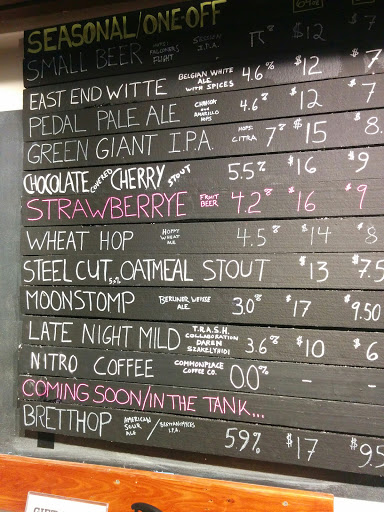 SEASONAL/ONE-OFF
SMALL BEER SESSION I.P.A. $12 $7
EAST END WITTE BELGIAN WHITE ALE WITH SPICES 4.6% $12 $7
PEDAL PALE ALE CHINOOK AND AMARILLO HOPS 4.6% $12 $7
GREEN GIANT I.P.A. HOPS: CITRA 7% $15 $8
CHOCOLATE COVERED CHERRY STOUT 5.5% $16 $9
STRAWBERRYE FRUIT BEER 4.2% $16 $9
WHEAT HOP HOPPY WHEAT ALE 4.5% $14 $8
STEEL CUT OATMEAL STOUT 5% $13 $7.5
MOONSTOMP BERLINER WEISSE ALE 3.0% $17 $9.50
LATE NIGHT MILD T.R.A.S.H. COLLABORATION DAREN 3.6% $10 $6
NITRO COFFEE COMMONPLACE COFFEE CO. 00% - -
COMING SOON/IN THE TANK...
BRETTHOP AMERICAN SOUR ALE / I.P.A. 5.9% $17 $9.5